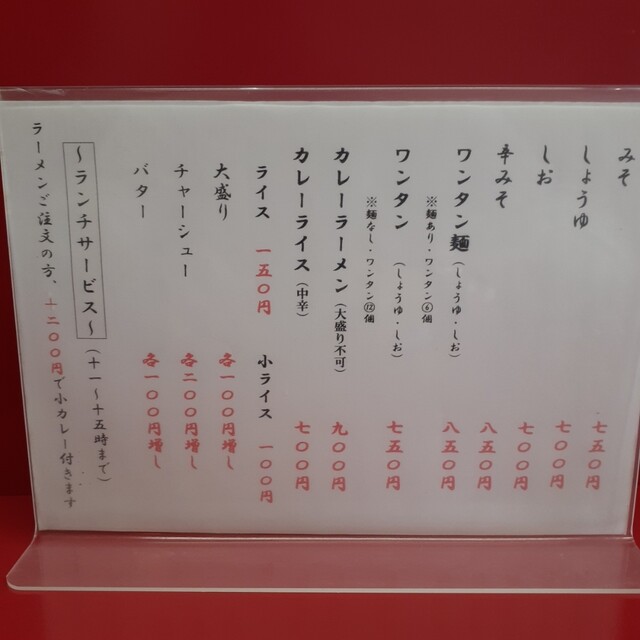 みそ 七五〇円
しょうゆ 七〇〇円
しお 七〇〇円
辛みそ 八五〇円
ワンタン麺(しょうゆ・しお) 八五〇円
※麺あり・ワンタン⑥個
ワンタン(しょうゆ・しお) 七五〇円
※麺なし・ワンタン⑫個
カレーラーメン(大盛り不可) 九〇〇円
カレーライス(中辛) 七〇〇円
ライス 一五〇円 小ライス 一〇〇円
大盛り 各一〇〇円増し
チャーシュー 各二〇〇円増し
バター 各一〇〇円増し
〜ランチサービス〜(十一〜十五時まで)
ラーメンご注文の方、+二〇〇円で小カレー付きます